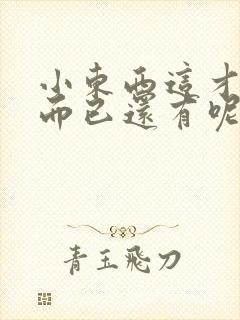 小東西這才
而已還有呢
青玉飛刀